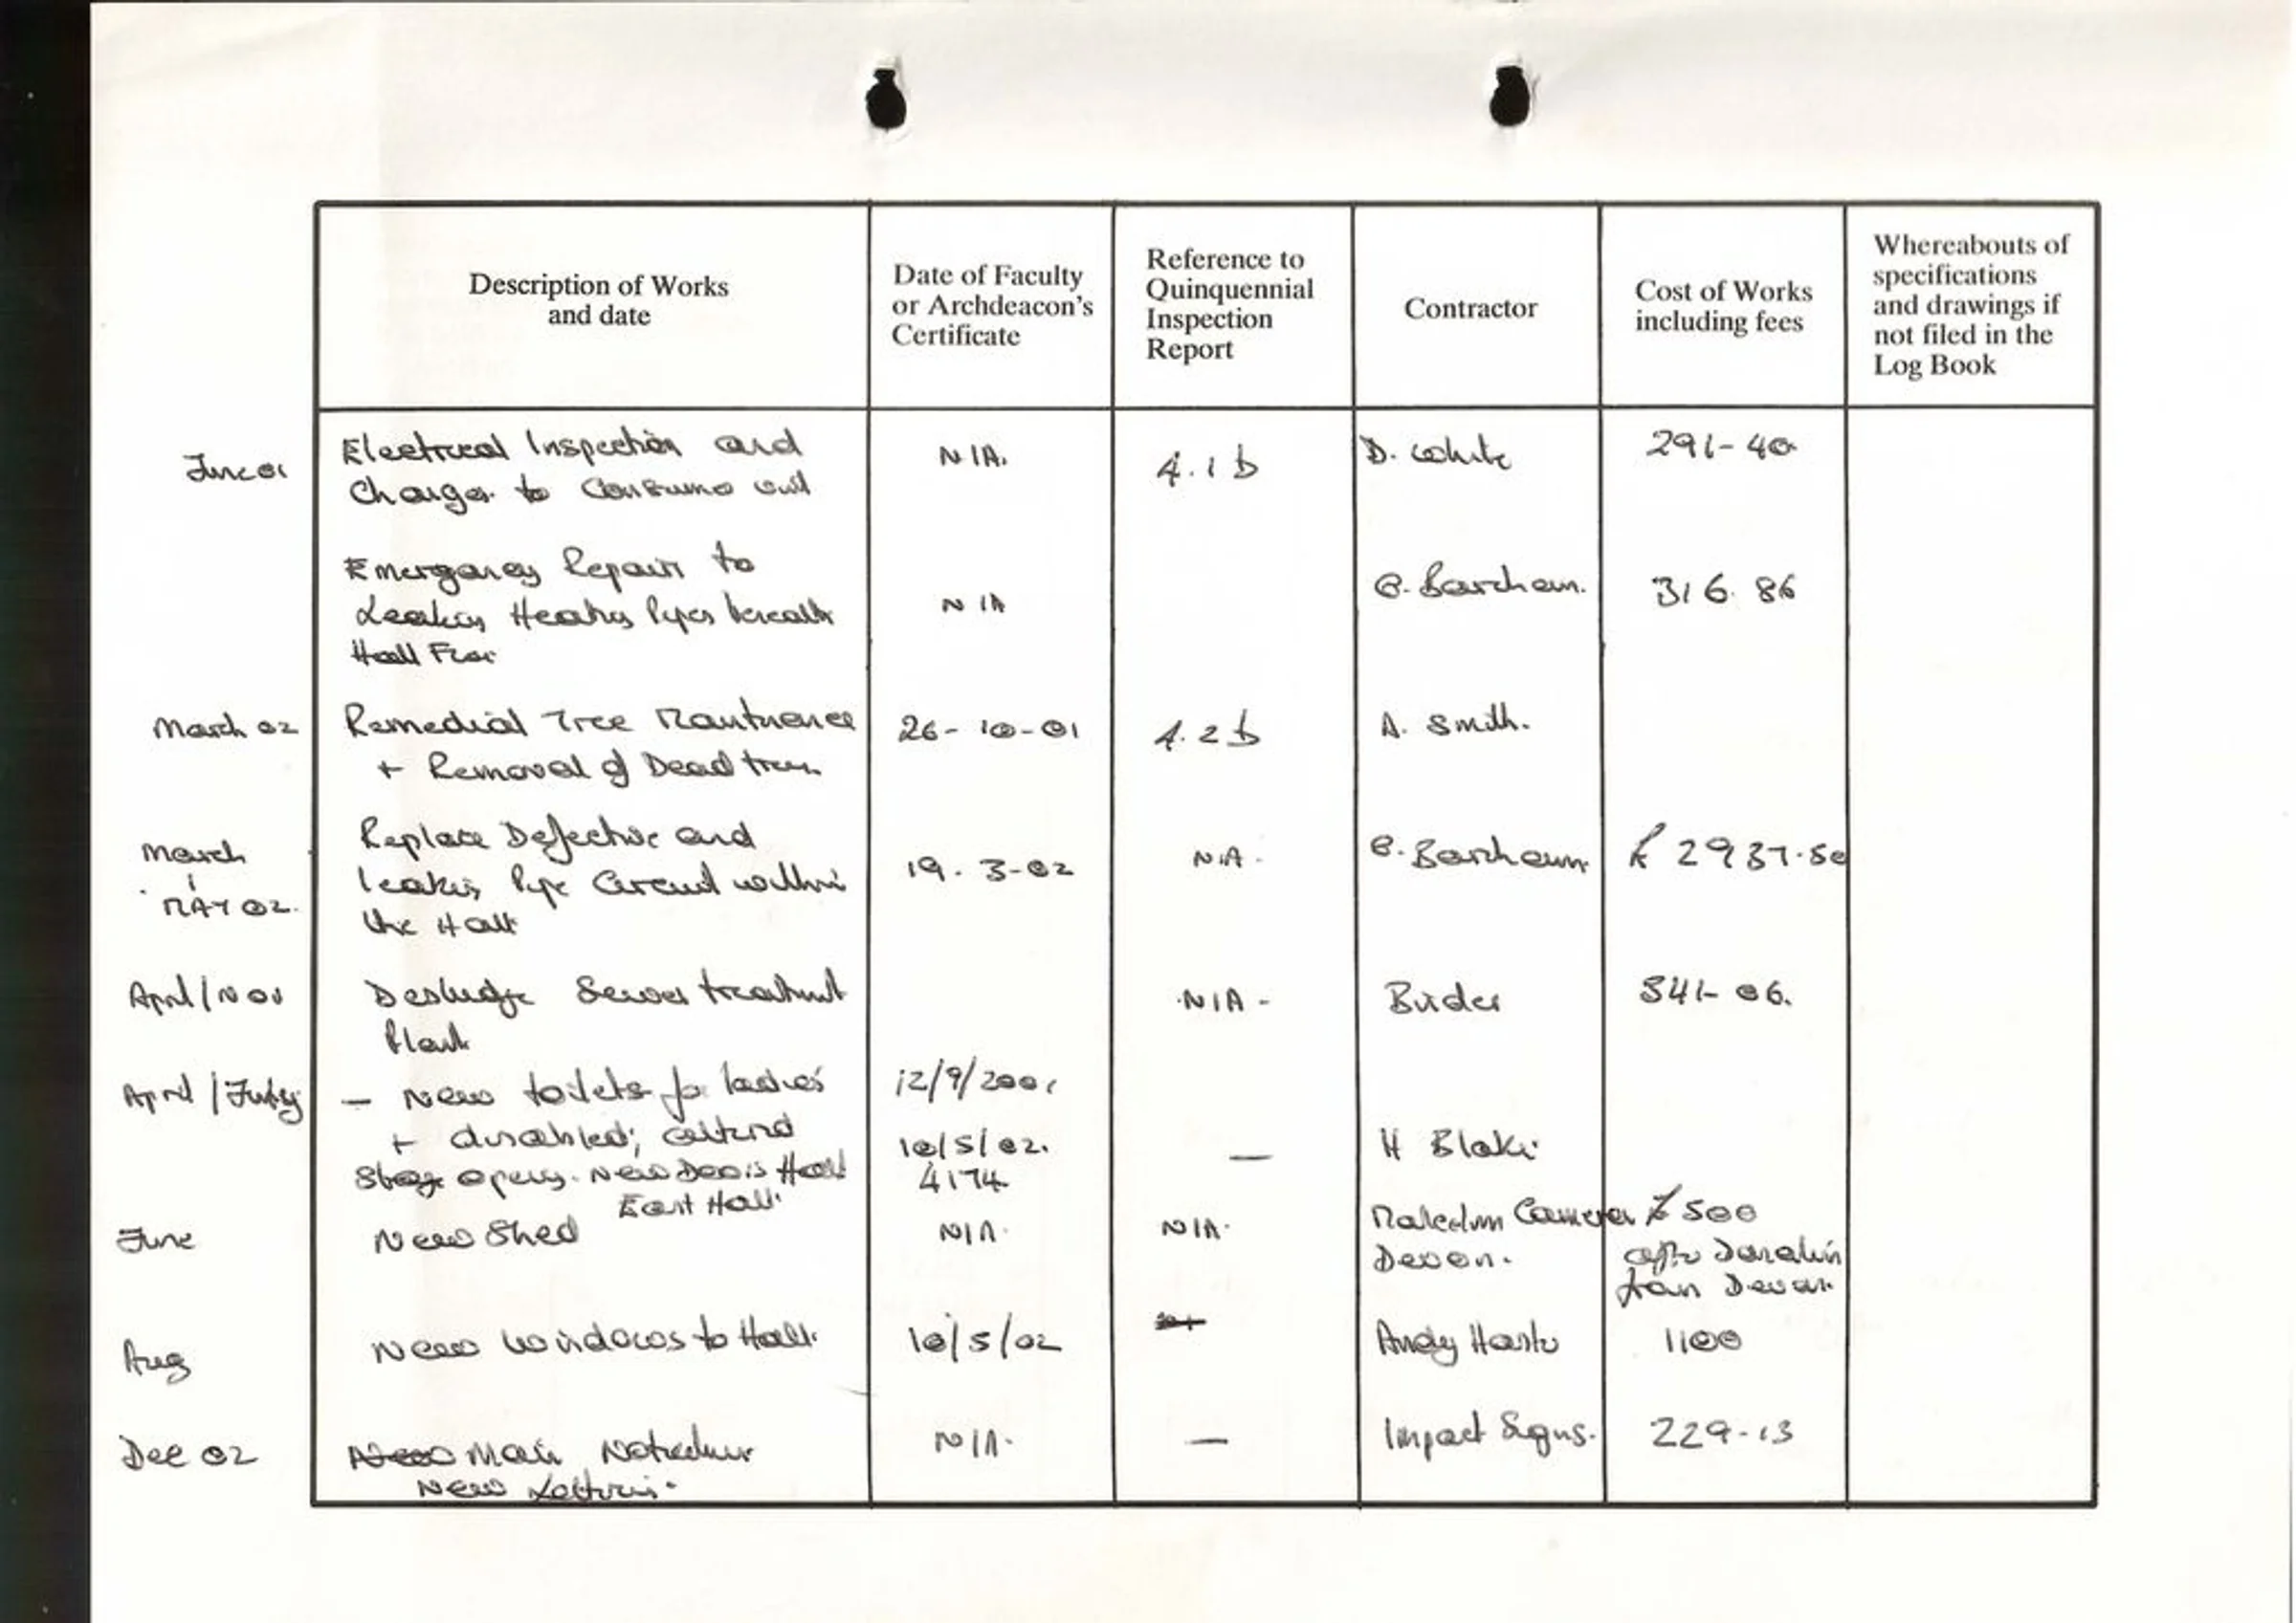 Description of Works
and date
Date of Faculty
or Archdeacon's
Certificate
Reference to
Quinquennial
Inspection
Report
Contractor
Cost of Works
including fees
Whereabouts of
specifications
and drawings if
not filed in the
Log Book
June 01
Electrical Inspection and
to Consumer unit
N/A.
4.1b
D. White
291-40
Emergency Repair to
Heating Pipes beneath
Hall Floor
N/A
Barcham.
316.86
March 02
Remedial Tree
+ Removal of Dead trees
26-10-01
4.2b
A. Smith.
March
MAY 02.
Replace Defective and
leaking Pipe Circuit within
the Hall
19.3-02
N.A-
Barcham
£2937.50
April/Nov
Desludge Sewer treatment
Plant
N/A-
341-06.
April/July
- New toilets for ladies
+ disabled;
New Doors Hall
East Hall
12/9/2001
10/5/02.
4174
—
H
June
New Shed
N/A.
N/A.
Malcolm £500
Devon.
Devon.
Aug
New Windows to Hall.
10/5/02
Andy
1100
Dec 02
New Main
New
N/A.
—
Impact Signs.
229-13